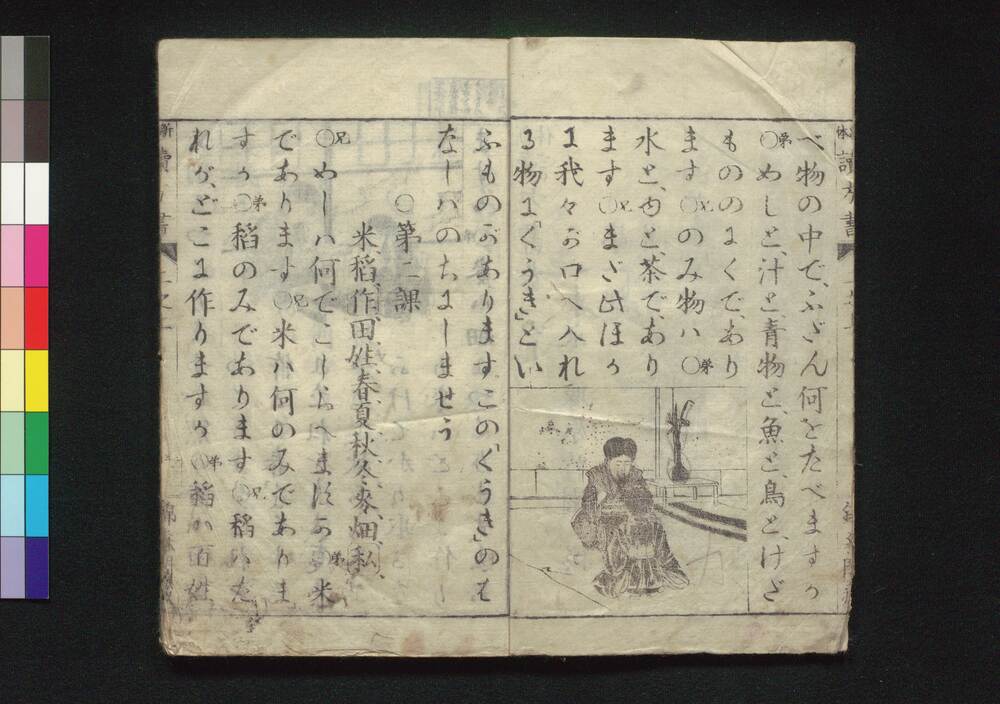 べ物の中で、ふだん何をたべますか
○弟めしと、汁と、青物と、魚と、鳥と、けだ
もののにくで、あり
ます○兄のみ物ハ○弟
水と、ゆと、茶で、あり
ます○兄まだ此ほか
に我々が口へ入れ
る物に「くうき」とい
ふものがありますこの「くうき」のは
なしハのちにしませう
○第二課
米、稻、作、田、姓、春、夏、秋、冬、麥、畑、私、
○兄めしハ何でこしらへますか○弟米
であります○兄米ハ何のみでありま
すか○弟稻のみであります○兄稻ハた
れが、どこに作りますか○弟稻ハ百姓